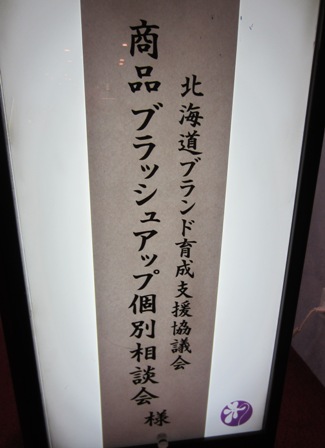 北海道ブランド育成支援協議会
商品ブラッシュアップ個別相談会 様